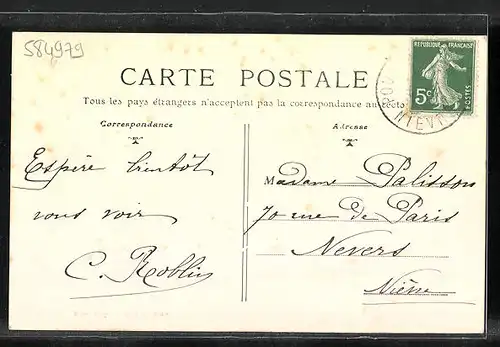 584979
RÉPUBLIQUE FRANÇAISE
5c
POSTES
CARTE POSTALE
Tous les pays étrangers n'acceptent pas la correspondance au recto
Correspondance
Adresse
Espère bientôt
vous voir
C. Roblin
Madame Palisson
70 rue de Paris
Nevers
Nièvre